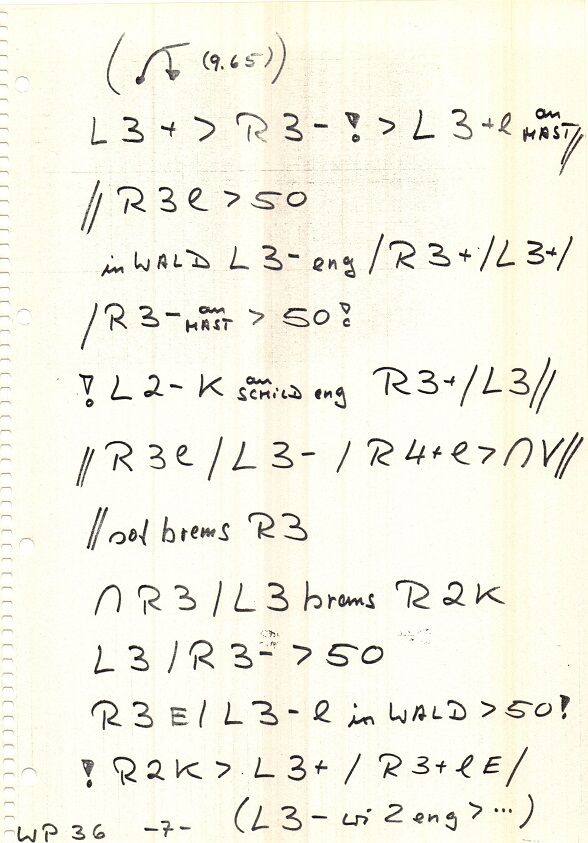 ( (9.65))
L 3 + > R 3 - ! > L 3 + l an MAST //
// R 3 l > 50
in WALD L 3 - eng / R 3 + / L 3 + /
/ R 3 - an MAST > 50 !
! L 2 - K an SCHILD eng R 3 + / L 3 //
// R 3 l / L 3 - / R 4 + l > ∩ V //
// sof brems R 3
∩ R 3 / L 3 brems R 2 K
L 3 / R 3 - > 50
R 3 E / L 3 - l in WALD > 50 !
! R 2 K > L 3 + / R 3 + l E /
(L 3 - wi 2 eng > ...)
WP 36 -7-